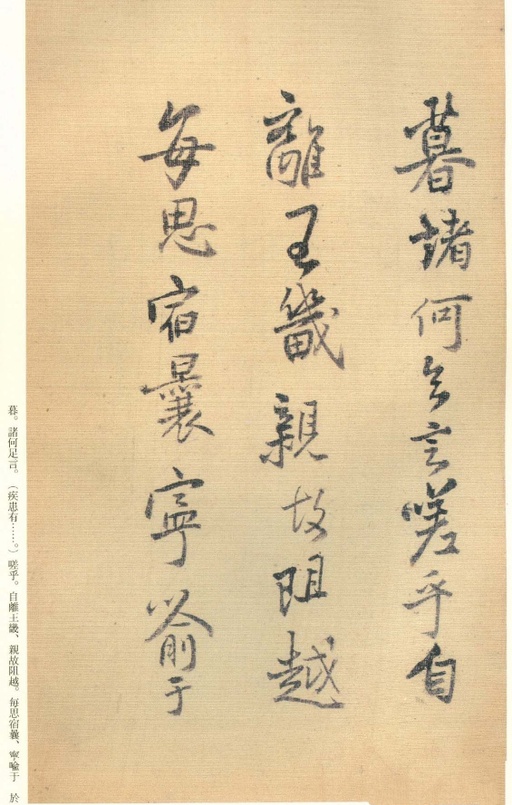 暮諸何足言嗟乎自
離王畿親故阻越
每思宿曩寧喻于
暮。諸何足言。（疾患有……。）嗟乎。自離王畿、親故阻越。每思宿曩、寧喩于 於